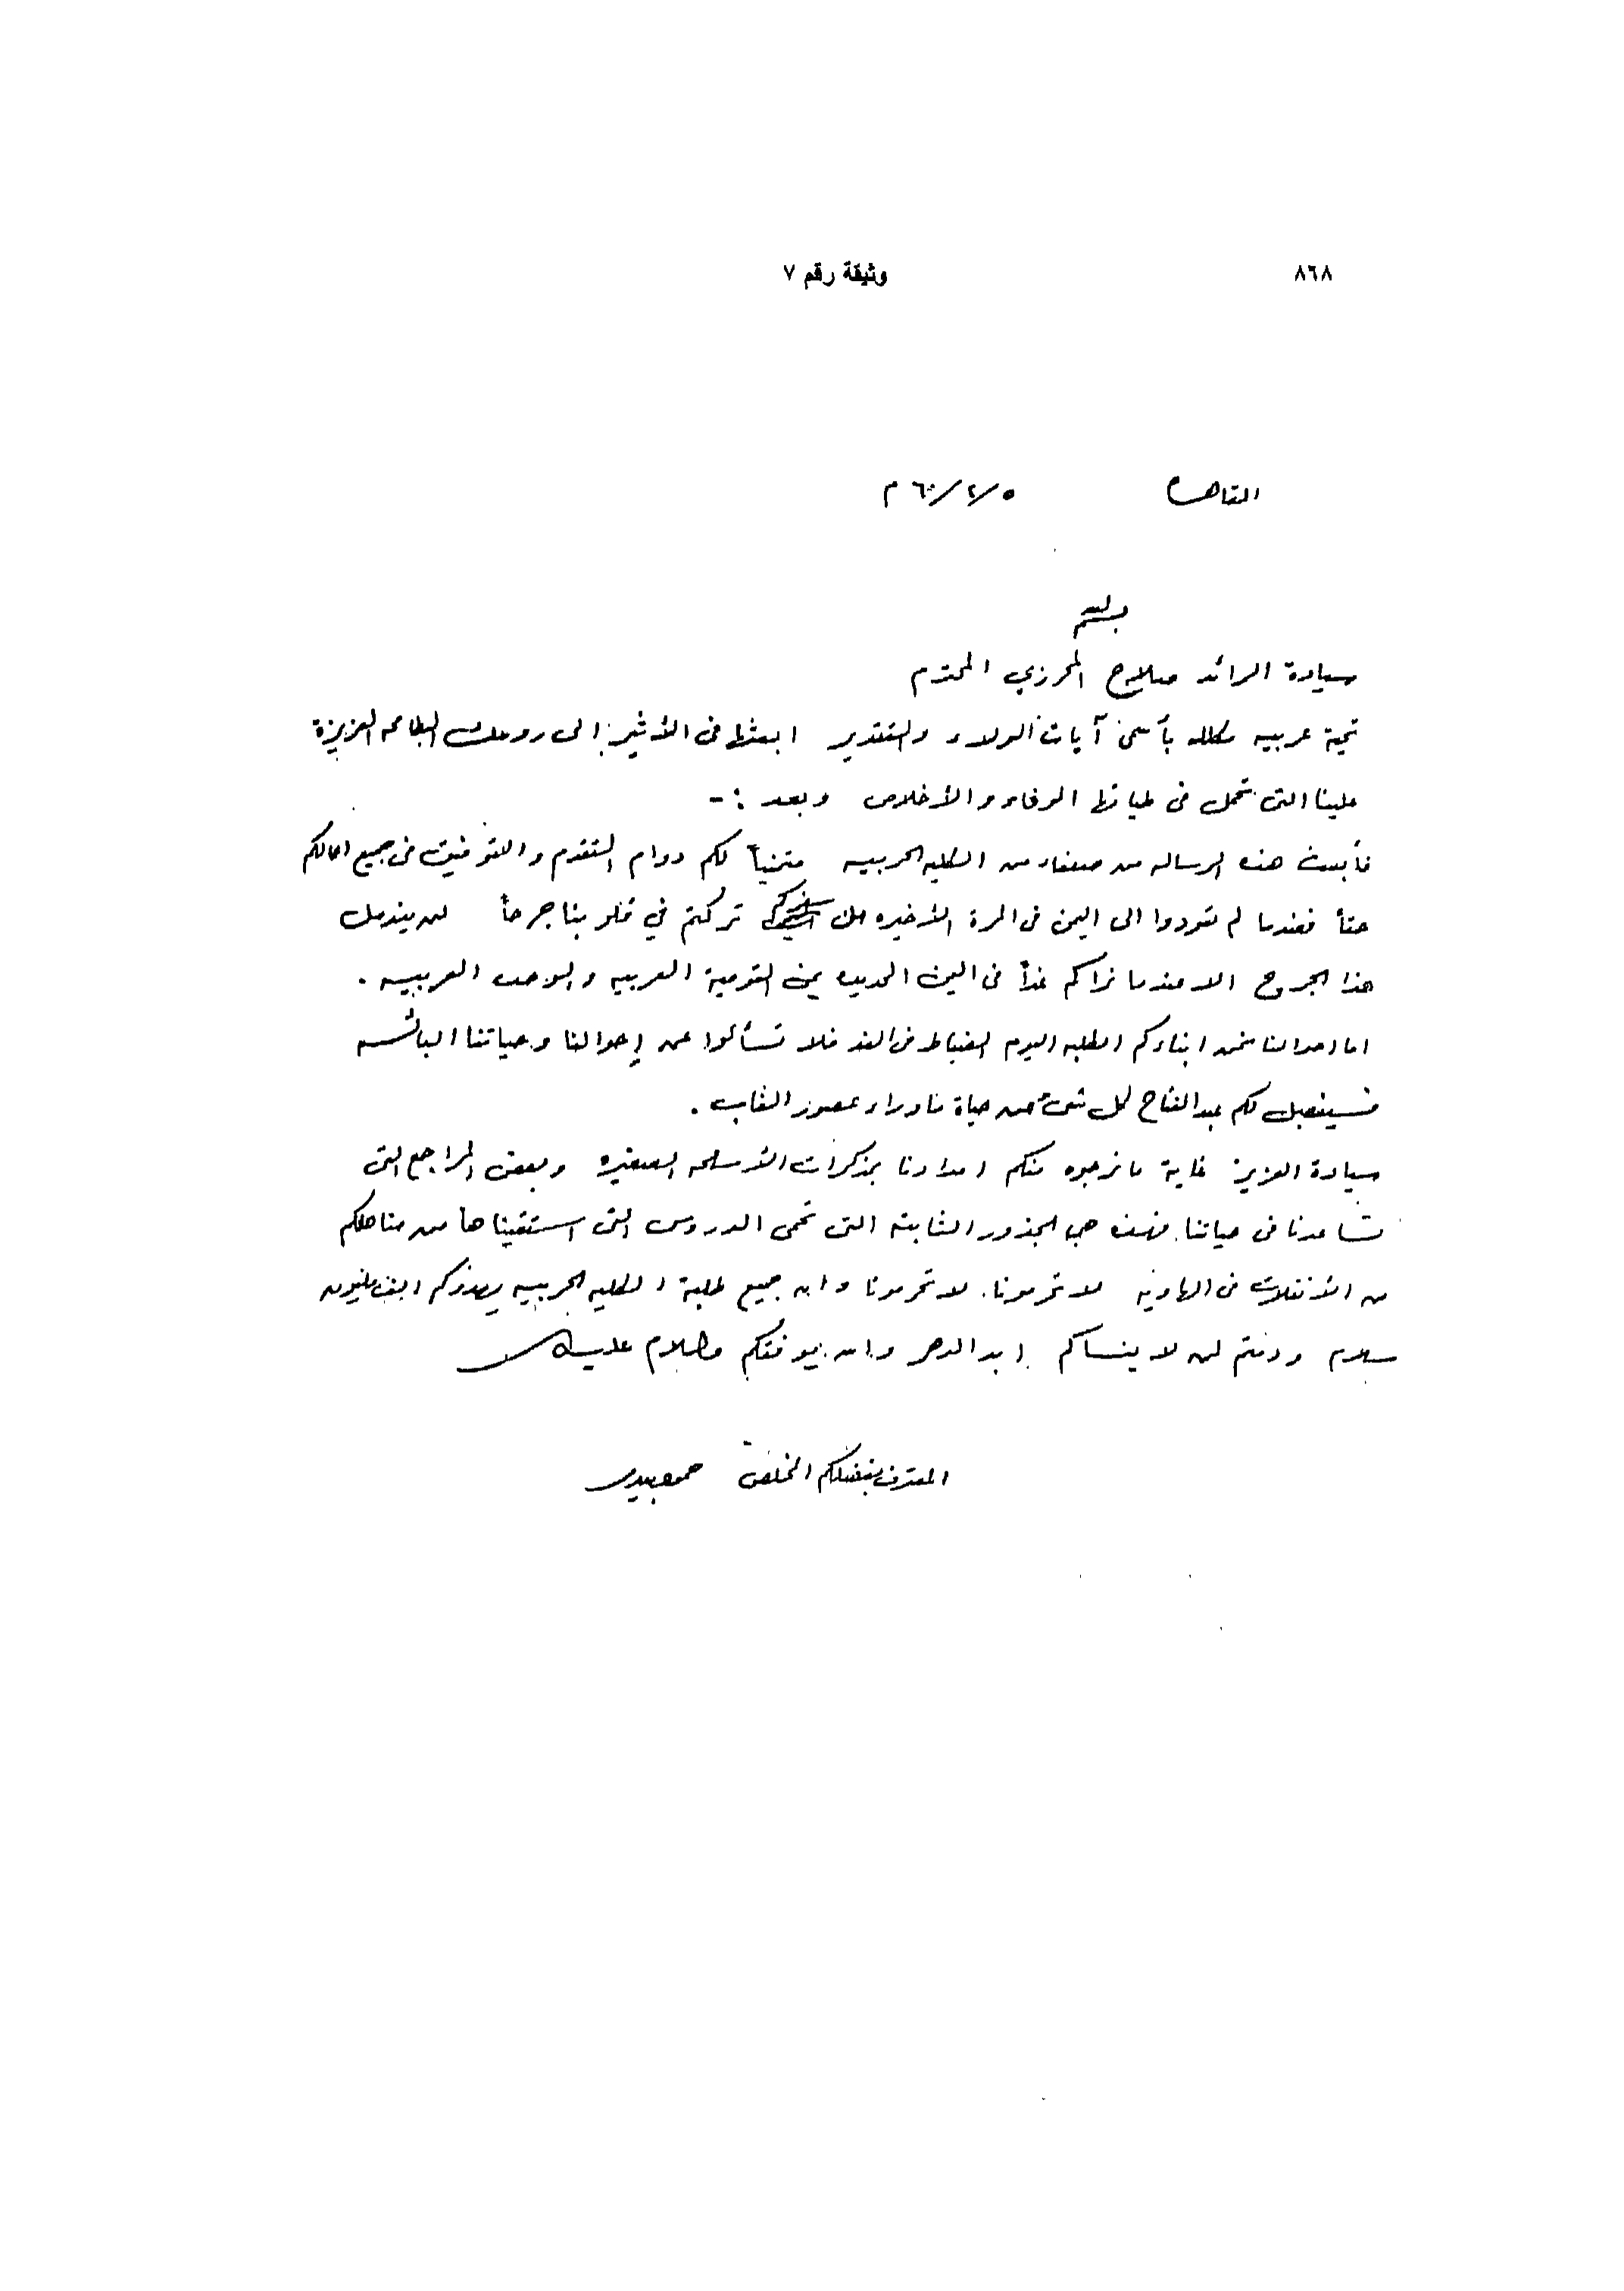 ٨٦٨ وثيقة رقم ٧
القاهره ٥/٢/٦٠ م
سيادة الرائد صلاح المحرزي المحترم
تحية عربيه مكلله بأسمى آيات الولاء والتقدير ابعثها فى الأثير إلى روحك الطاهره العزيزة
علينا التى تحمل فى طياتها الوفاء والأخلاص وبعد :-
فأبعث هذه الرساله من صنعاء من الكليه الحربيه متمنياً لكم دوام التقدم والتوفيق فى جميع اعمالكم
حقاً فعندما لم تعودوا الى اليمن فى المرة الأخيره تركتم في قلوبنا جرحاً لن يندمل
هذا الجرح الا عندما نراكم غداً فى اليمن الجديده يمن القومية العربيه والوحده العربيه .
اما احوالنا نحن ابناءكم الطلبه اليوم الضباط فى الغد فلا تسألوا عن إحوالنا وحياتنا البائسه
فسيفصل لكم عبد الفتاح كل شئ عن حياة ما وراء عصور الغاب .
سيادة العزيز غاية ما نرجوه منكم امدادنا بمذكرات الأسلحه الصغيره وبعض المراجع التى
تساعدنا فى حياتنا. فهذه هى الجذور الثابته التى تحمى الدروس التى استقيناها من مناهلكم
من الأنفلات فى الهاويه لا تحرمونا. لا تحرمونا وان جميع طلبة الكليه الحربيه يهدوكم الف مليون
سلام ودمتم لمن لا ينساكم ابد الدهر والله يوفقكم والسلام عليكم
المعترف بفضلكم المخلص حمود بيدر